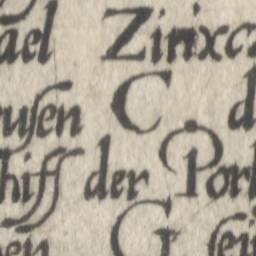 ael Zirixcz
uſen C. d
hiff der Porl
en G ſei